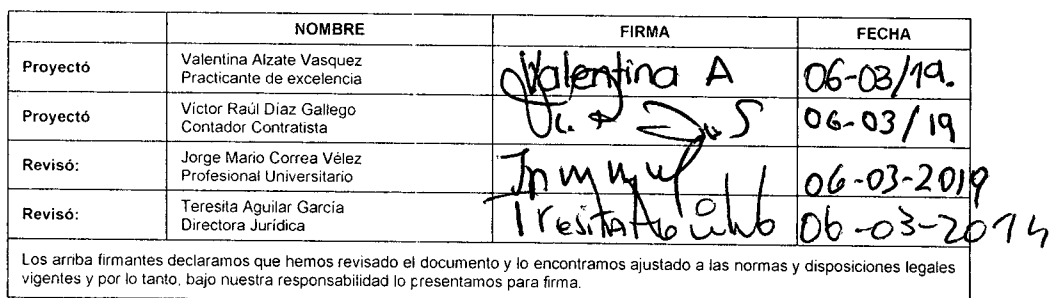 NOMBRE FIRMA FECHA
Proyectó Valentina Alzate Vasquez Valentina A 06-03/19.
Practicante de excelencia
Proyectó Víctor Raúl Díaz Gallego 06-03/19
Contador Contratista
Revisó: Jorge Mario Correa Vélez 06-03-2019
Profesional Universitario
Revisó: Teresita Aguilar García 06-03-2019
Directora Jurídica
Los arriba firmantes declaramos que hemos revisado el documento y lo encontramos ajustado a las normas y disposiciones legales
vigentes y por lo tanto, bajo nuestra responsabilidad lo presentamos para firma.